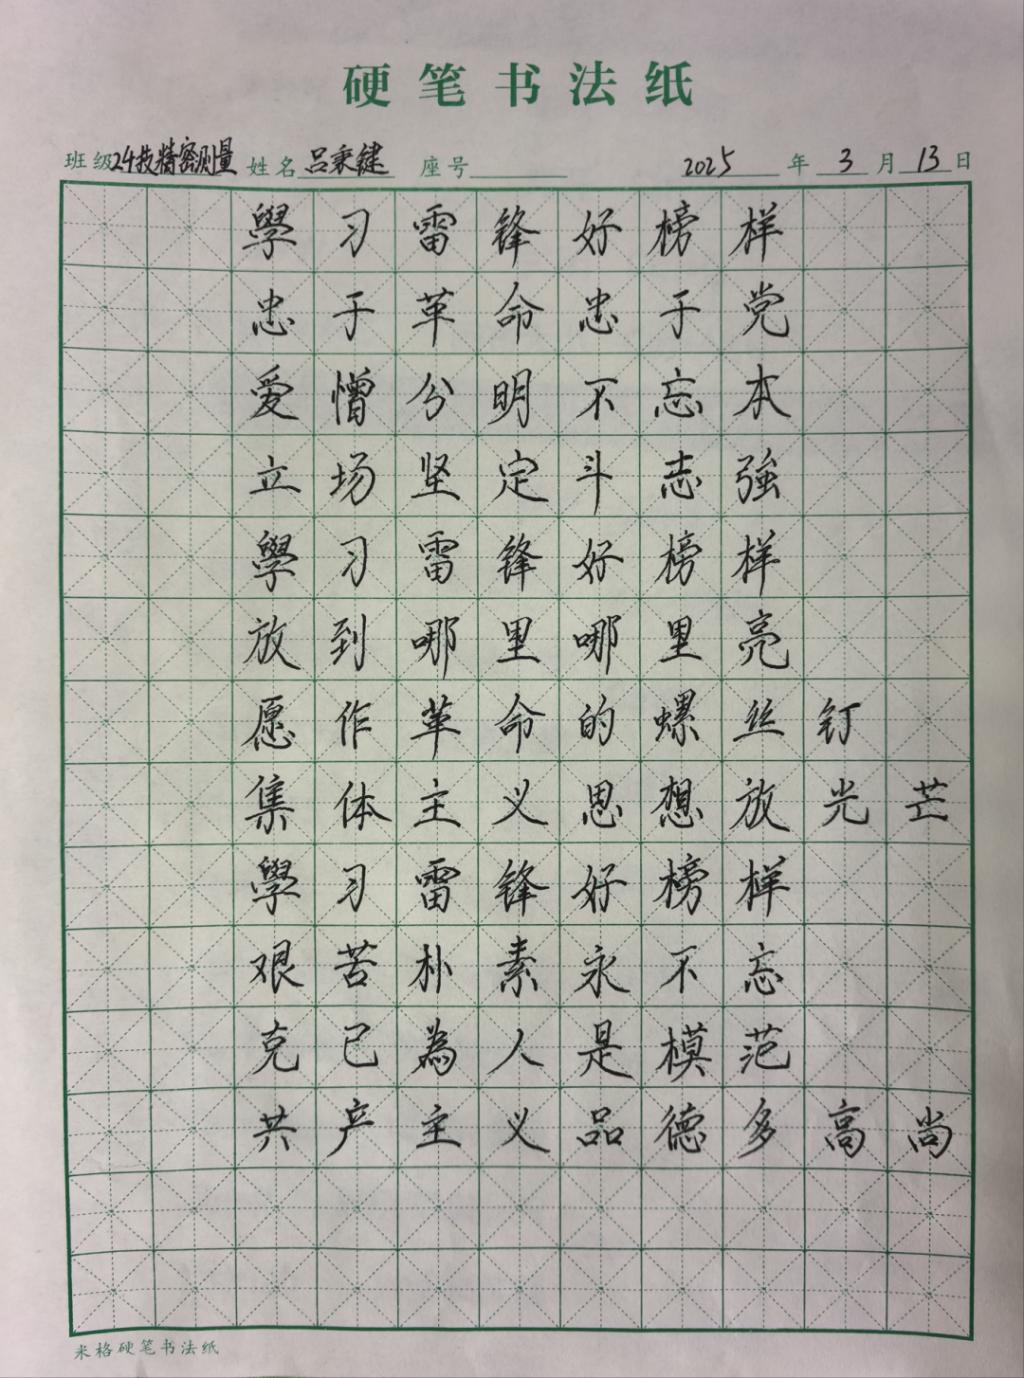 硬笔书法纸
班级24技精密测量 姓名吕秉键 座号 2025年3月13日
學习雷锋好榜样
忠于革命忠于党
爱憎分明不忘本
立场坚定斗志強
學习雷锋好榜样
放到哪里哪里亮
愿作革命的螺丝钉
集体主义思想放光芒
學习雷锋好榜样
艰苦朴素永不忘
克己為人是模范
共产主义品德多高尚
米格硬笔书法纸